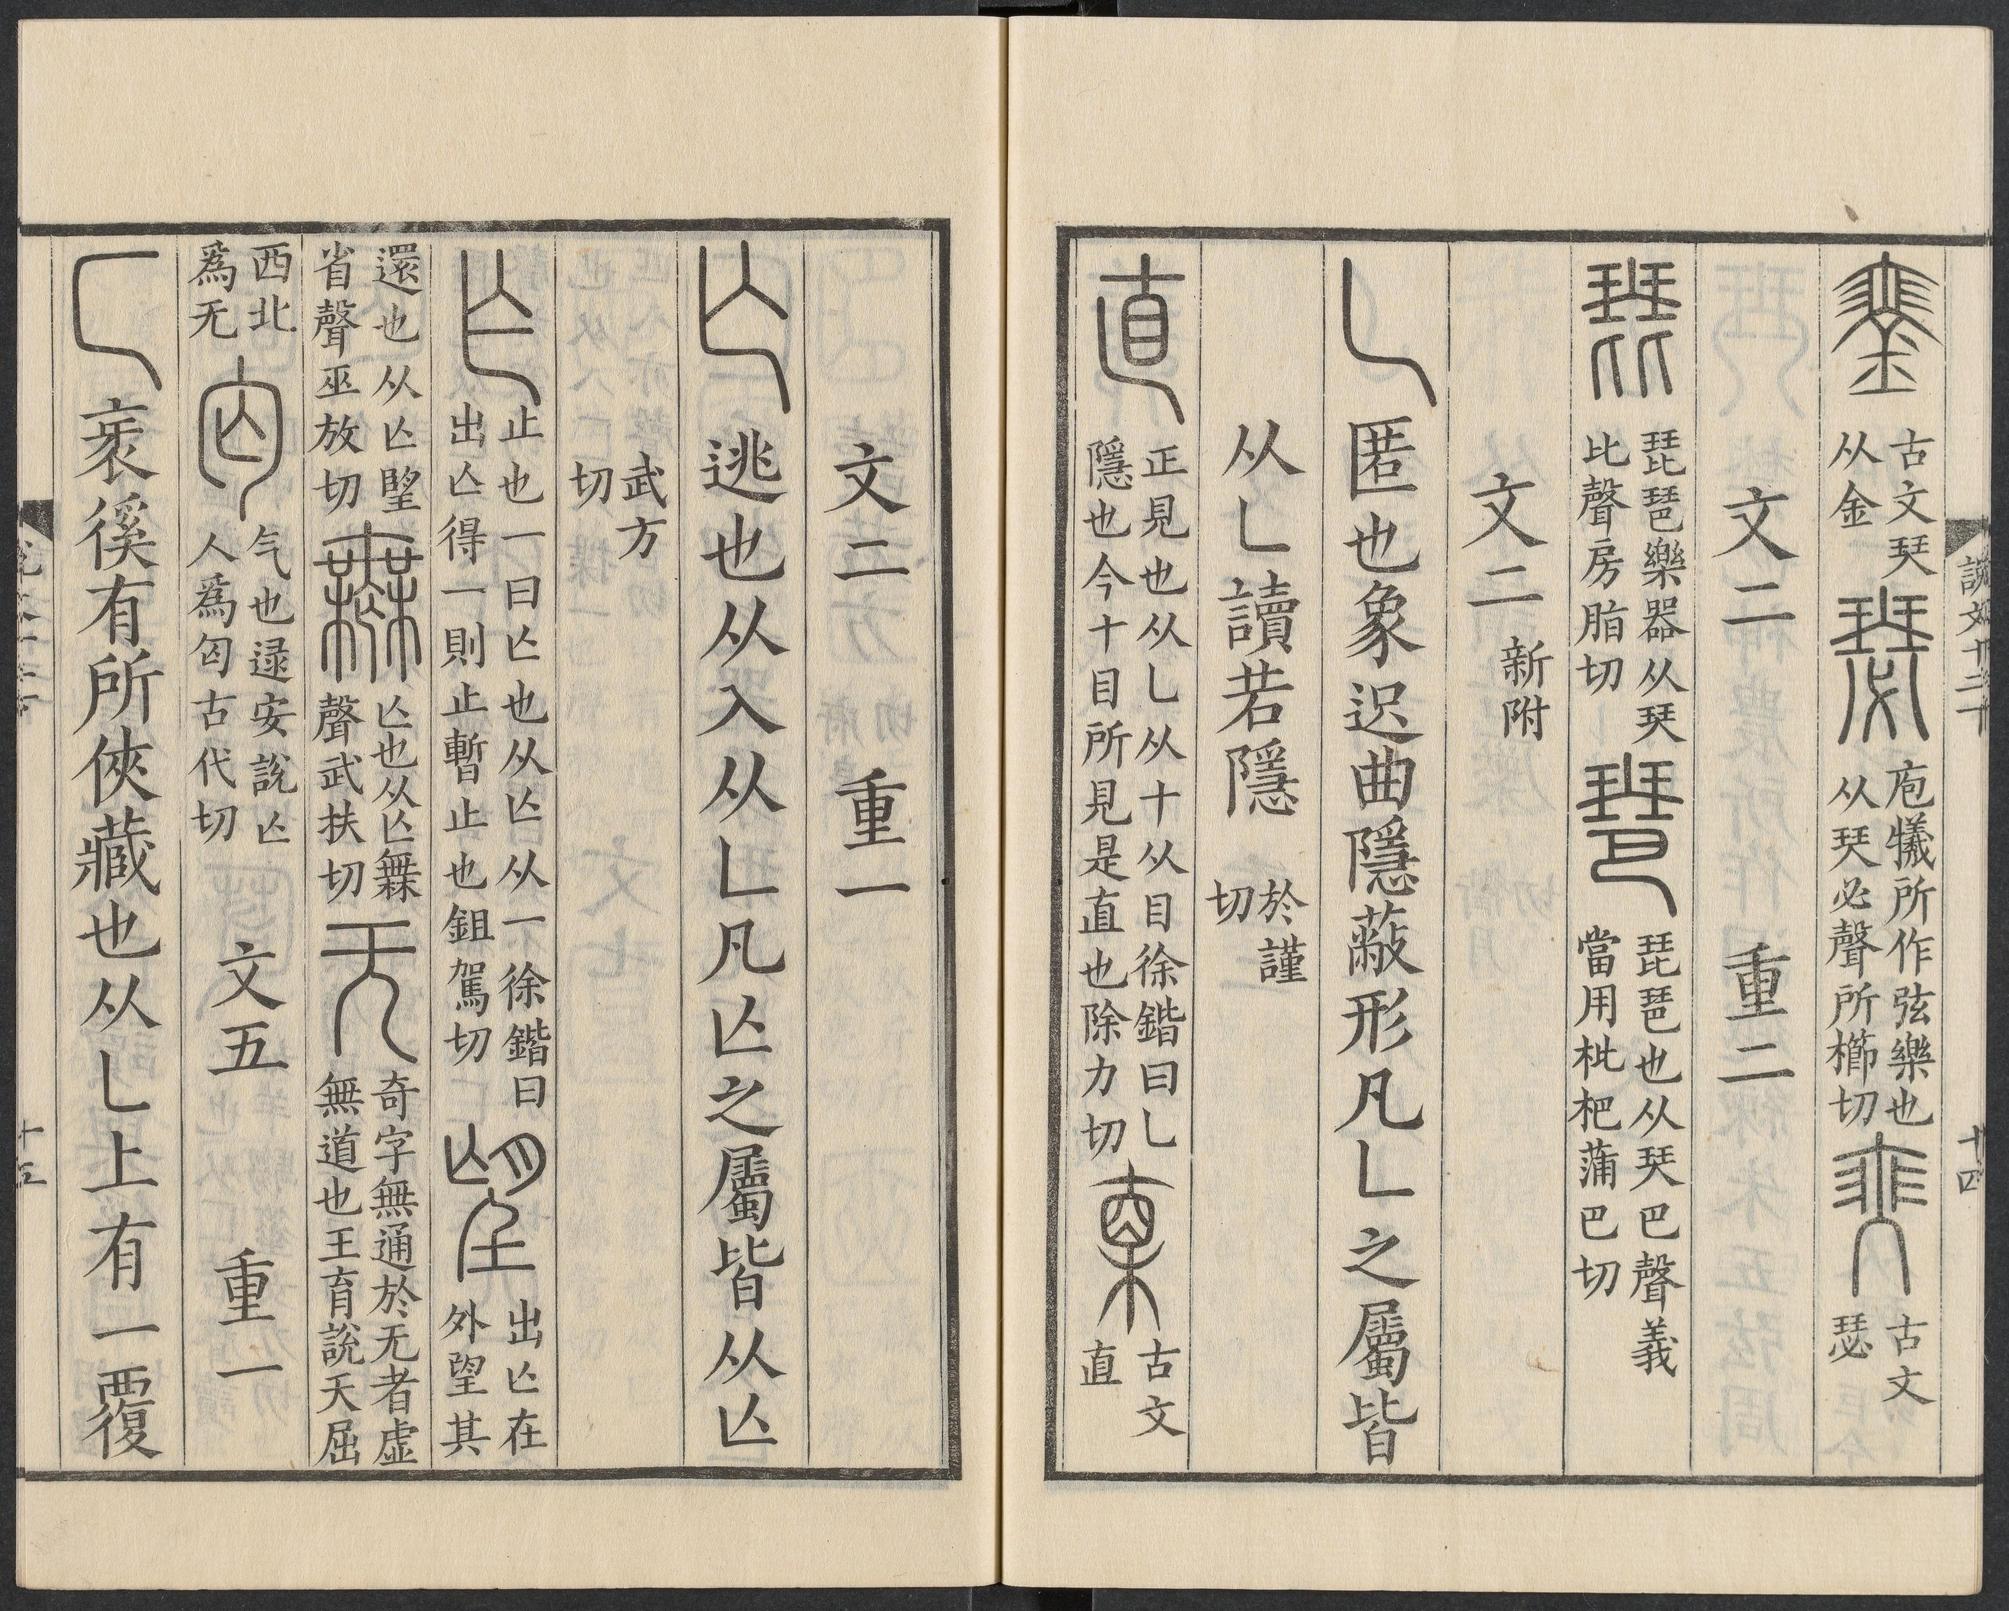 說文十二下 十四
𨥆 古文珡从金 瑟 庖犧所作弦樂也从珡必聲所櫛切 𤨕 古文瑟
文二 重二
琵 琵琶樂器从珡比聲房脂切 琶 琵琶也从珡巴聲義當用枇杷蒲巴切
文二 新附
乚 匿也象迟曲隱蔽形凡乚之屬皆
从乚讀若隱 於謹切
直 正見也从乚从十从目徐鍇曰乚隱也今十目所見是直也除力切 𣖌 古文直
文二 重一
亾 逃也从入从乚凡亾之屬皆从亾
武方切
乍 止也一曰亾也从亾从一徐鍇曰出亾得一則止暫止也鉏駕切 望 出亾在外望其
還也从亾朢省聲巫放切 無 亾也从亾無聲武扶切 无 奇字無通於无者虛無道也王育說天屈
西北爲无 匃 气也逯安說亾人爲匃古代切 文五 重一
匸 衺徯有所俠藏也从乚上有一覆